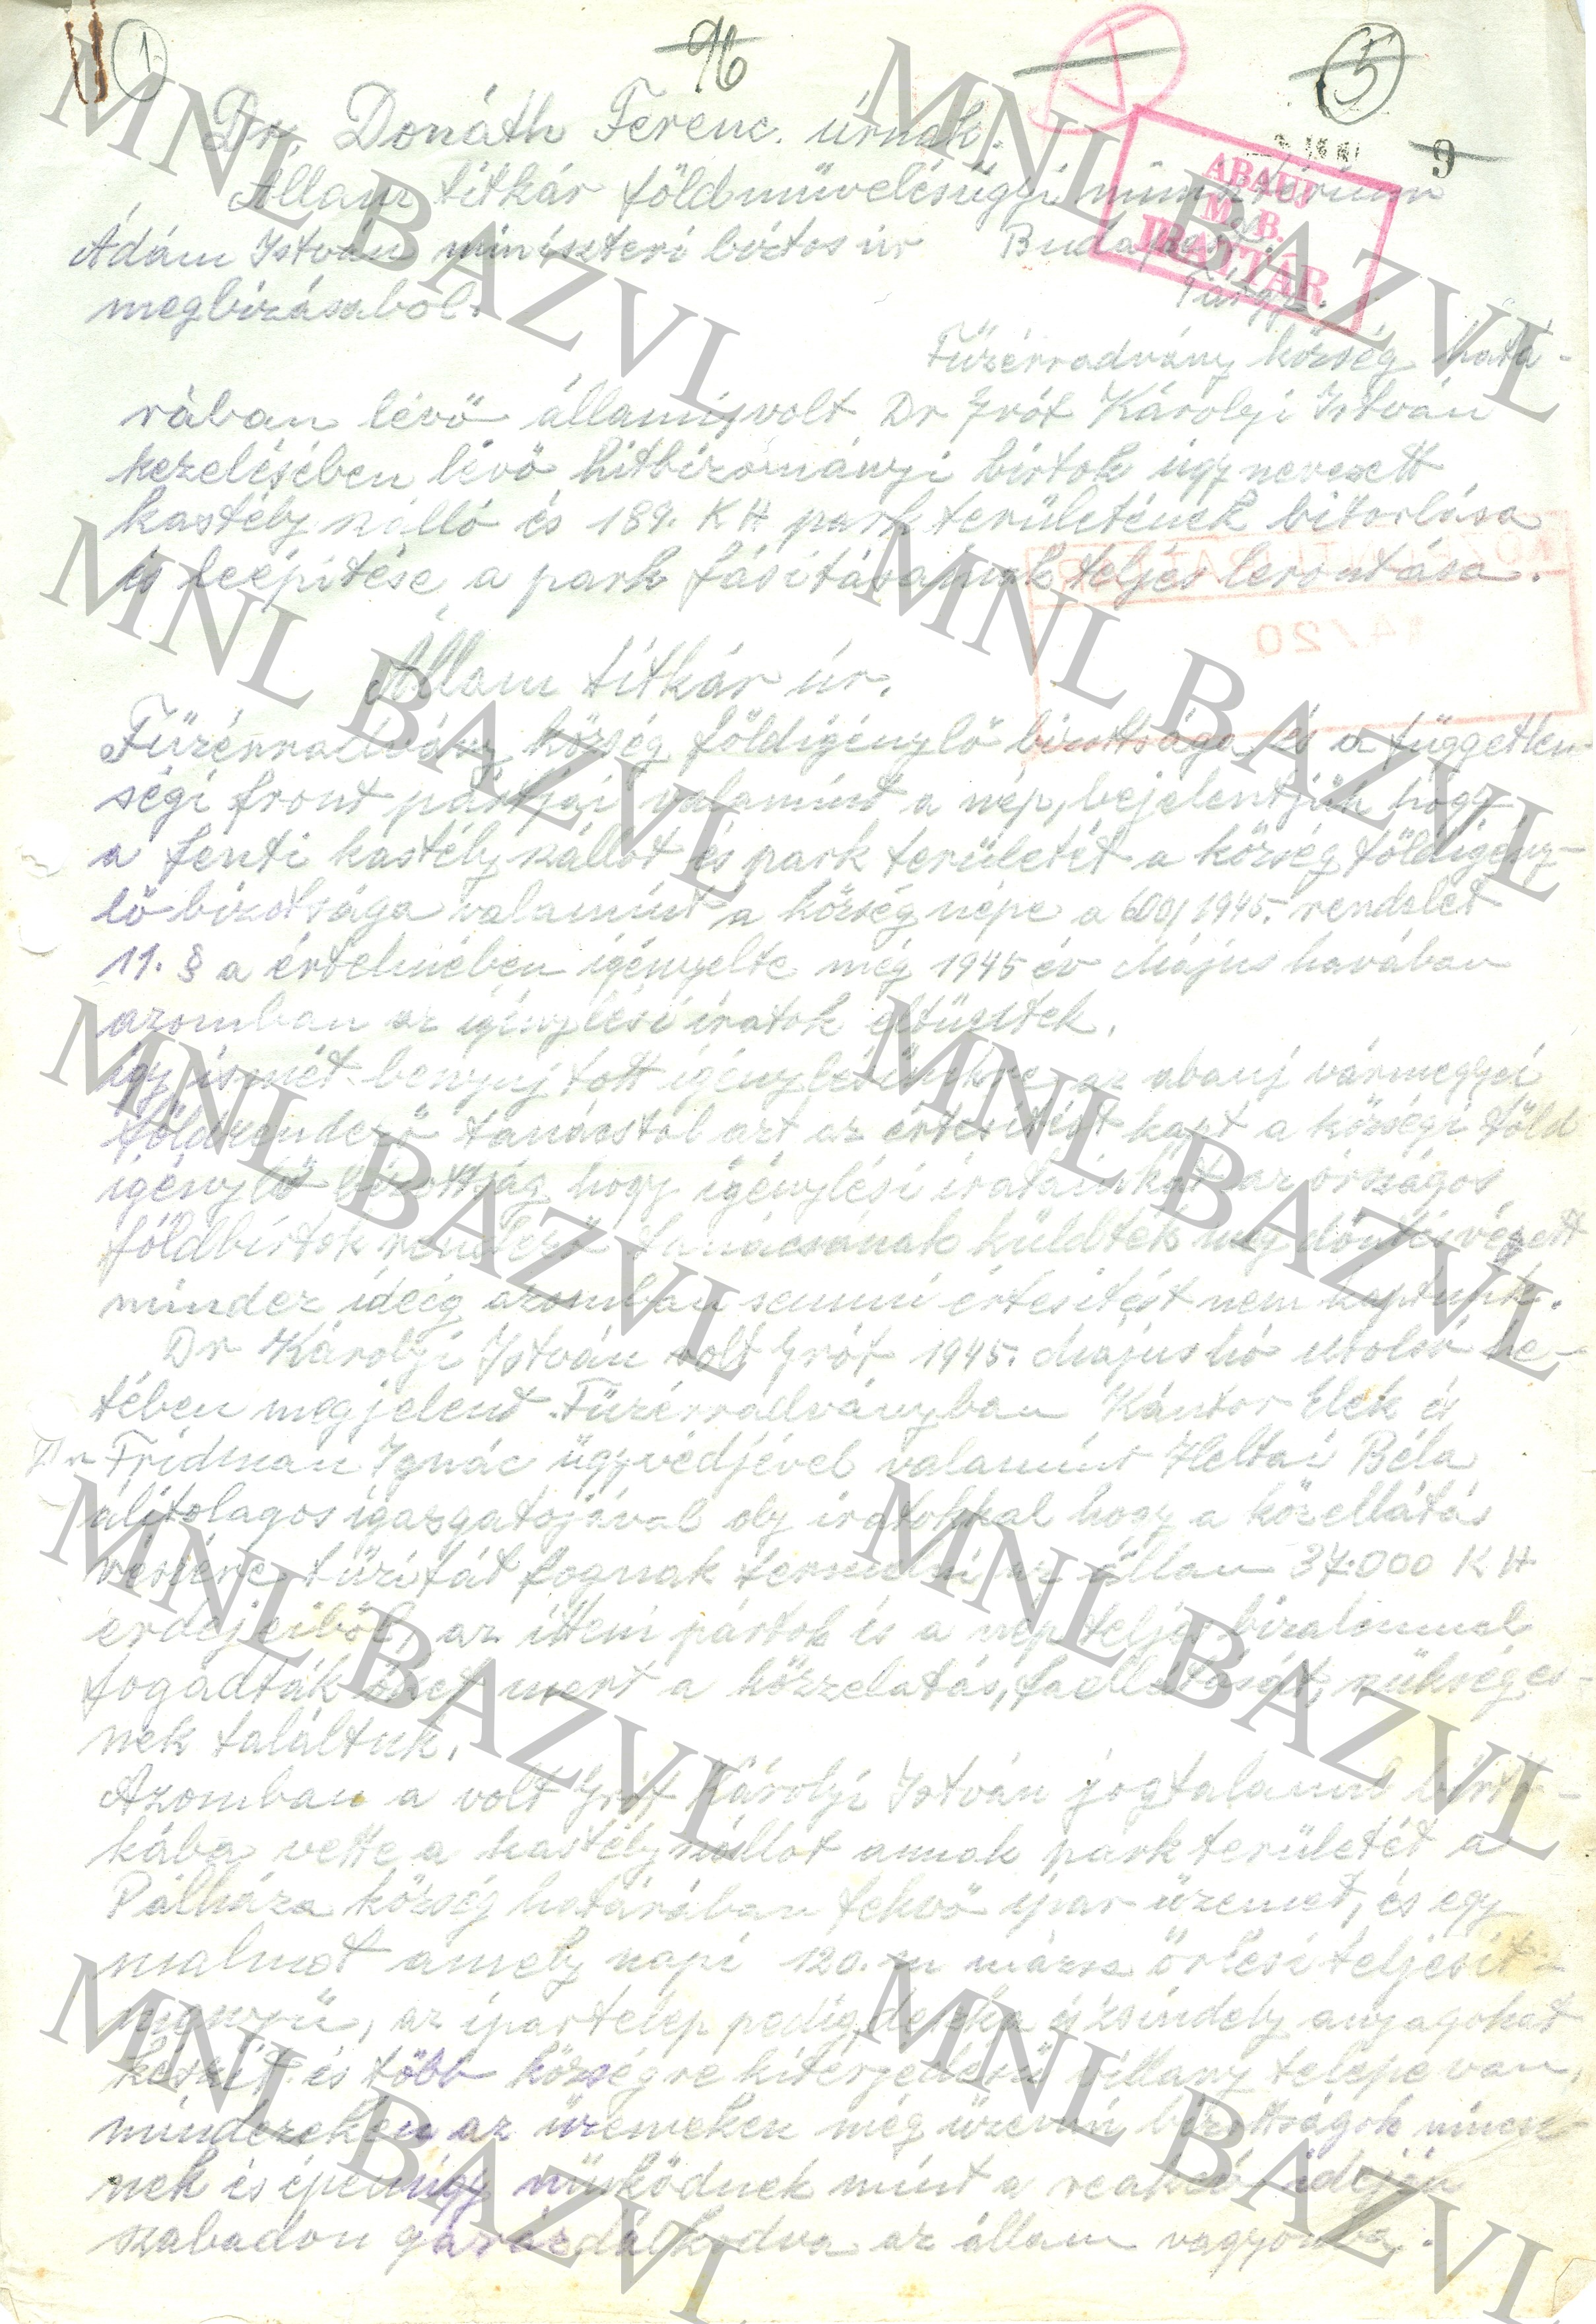 1 96 5
9
Dr. Donáth Ferenc. úrnak.
Állam titkár földmüvelésügyi minisztérium
ABAUJ
M. B.
IRATTÁR
Ádám István miniszteri biztos úr Budapest.
megbizásából. Tárgy.
Füzérradvány község hatá-
rában lévö állami, volt Dr Gróf Károlyi István
kezelésében lévö hitbizományi birtok úgy nevezett
kastély szálló és 189. KH park területének bitorlása
és beépitése a park fásitásának teljes lerontása.
14/20
Állam titkár úr.
Füzérradvány község földigénylö bizottsága és a független-
ségi front pártjai valamint a nép, bejelentjük hogy
a fenti kastély szállót és park területét a község földigény-
lö bizotsága valamint a község népe a 600/1945. rendelet
11. § a értelmében igényelte még 1945 év Május havában
azomban az igénylési iratok eltüntek.
így ismét benyujtott igénylésünkre az abauj vármegyei
földrendezö tanácstol azt az értesitést kapt a községi föld
igénylö bizottság hogy igénylési iratainkat az országos
földbirtok rendezö tanácsának küldték meg döntés végett
mindez ideig azomban semmi értesitést nem kaptunk.
Dr Károlyi István volt Gróf 1945. Május hó utolsó he-
tében megjelent Füzérradványban Kántor Elek és
Dr Fridman Ignác ügyvédjével valamint Heltai Béla
álitolagos igazgatojával oly iratokkal hogy a közellátás
részére tüzifát fognak termelni az állam 37.000 KH
erdejeiböl, az itteni pártok és a nép teljes bizalommal
fogadták öket mert a közzelatás, faellátását, szükséges-
nek találtuk.
Azomban a volt Gróf Károlyi István jogtalanul birto-
kába vette a kastély szállot annak park területét a
Pálháza község határában fekvö ipar üzemet, és egy
malmot amely napi 120. m mázsa örlési teljesit-
ményü, az ipartelep pedig deszka és zsindely anyagokat
készit és több községre kiterjedésü villany telepe van,
mindezeken az üzemeken még üzemi bizottságok nincse-
nek és épen úgy müködnek mint a reakció idején
szabadon garázdálkodva az állam vagyonba.